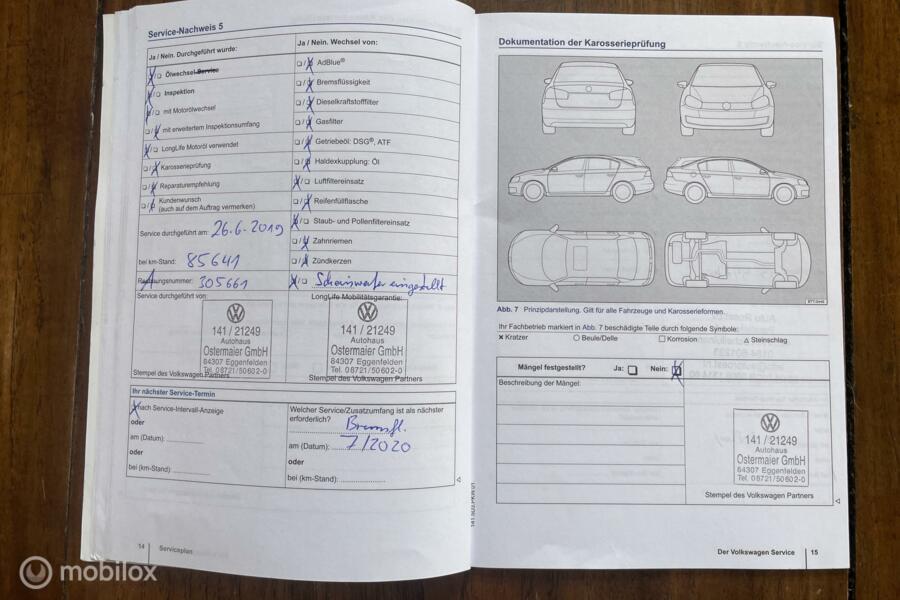 Service-Nachweis 5
Ja / Nein. Durchgeführt wurde:
Ölwechsel-Service
Inspektion
mit Motorölwechsel
mit erweitertem Inspektionsumfang
LongLife Motoröl verwendet
Karosserieprüfung
Reparaturempfehlung
Kundenwunsch
(auch auf dem Auftrag vermerken)
Service durchgeführt am: 26.6.2019
bei km-Stand: 85641
305661
Service durchgeführt von:
141 / 21249
Autohaus
Ostermaier GmbH
84307 Eggenfelden
Tel. 08721/50602-0
Stempel des Volkswagen Partners
Ja / Nein. Wechsel von:
AdBlue®
Bremsflüssigkeit
Dieselkraftstofffilter
Gasfilter
Getriebeöl: DSG®, ATF
Haldexkupplung: Öl
Luftfiltereinsatz
Reifenfüllflasche
Staub- und Pollenfiltereinsatz
Zahnriemen
Zündkerzen
Scheinwerfer eingestellt
LongLife Mobilitätsgarantie:
141 / 21249
Autohaus
Ostermaier GmbH
84307 Eggenfelden
Tel. 08721/50602-0
Stempel des Volkswagen Partners
Ihr nächster Service-Termin
nach Service-Intervall-Anzeige
oder
am (Datum):
oder
bei (km-Stand):
Welcher Service/Zusatzumfang ist als nächster
erforderlich? Bremsfl.
am (Datum): 7/2020
oder
bei (km-Stand):
14 Serviceplan
Dokumentation der Karosserieprüfung
Abb. 7 Prinzipdarstellung. Gilt für alle Fahrzeuge und Karosserieformen.
Ihr Fachbetrieb markiert in Abb. 7 beschädigte Teile durch folgende Symbole:
Kratzer Beule/Delle Korrosion Steinschlag
Mängel festgestellt? Ja: Nein:
Beschreibung der Mängel:
141 / 21249
Autohaus
Ostermaier GmbH
84307 Eggenfelden
Tel. 08721/50602-0
Stempel des Volkswagen Partners
Der Volkswagen Service 15
mobilox